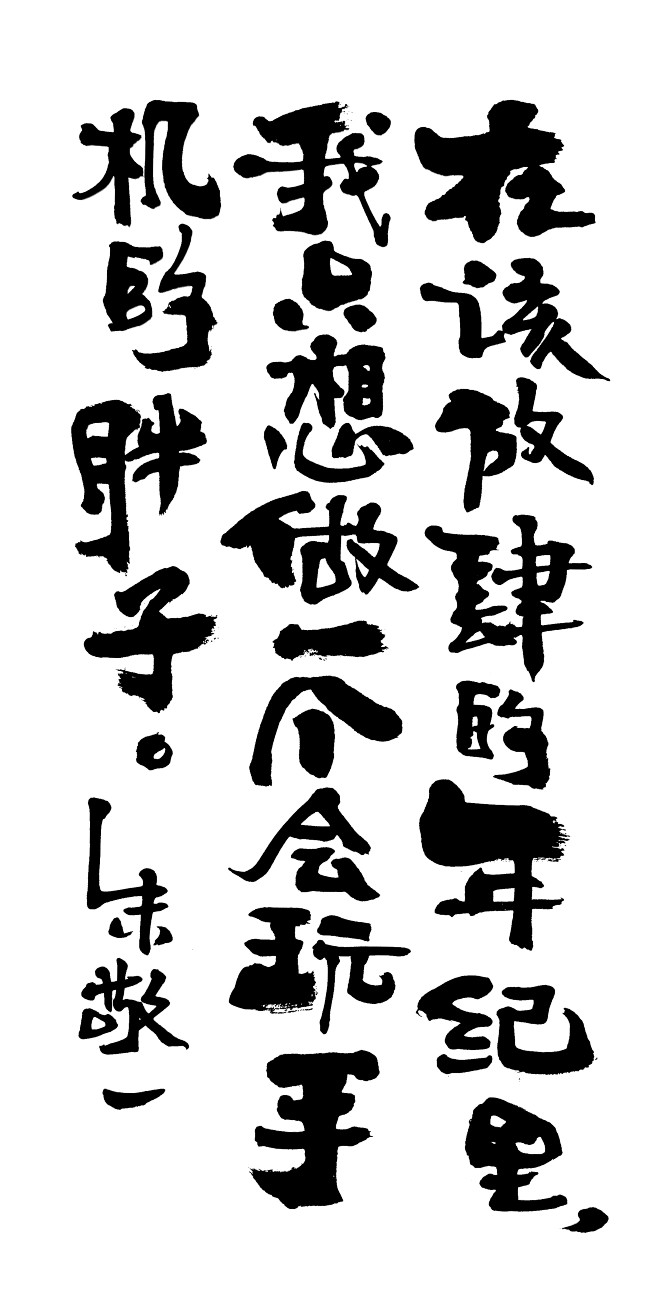 在该放肆的年纪里，
我只想做一个会玩手
机的胖子。朱敬一